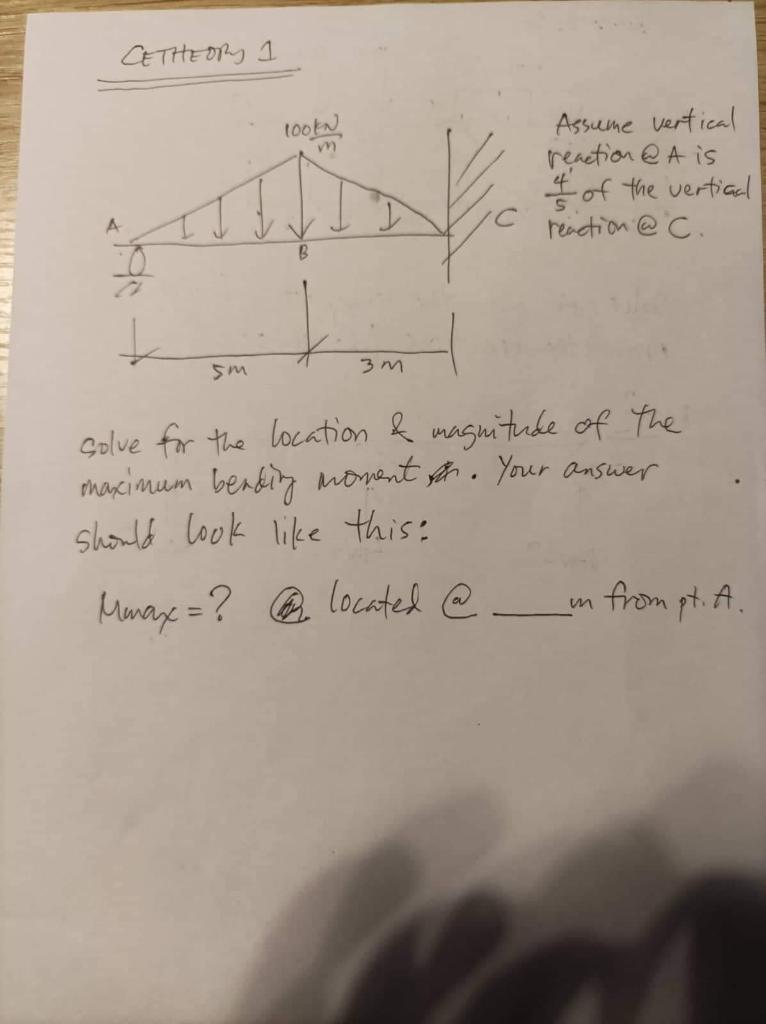 CETHEORY 1
100 kN/m
A
B
C
5m
3m
Assume vertical
reaction @ A is
4/5 of the vertical
reaction @ C.
solve for the location & magnitude of the
maximum bending moment. Your answer
should look like this:
Mmax = ? located @ ____ m from pt. A.